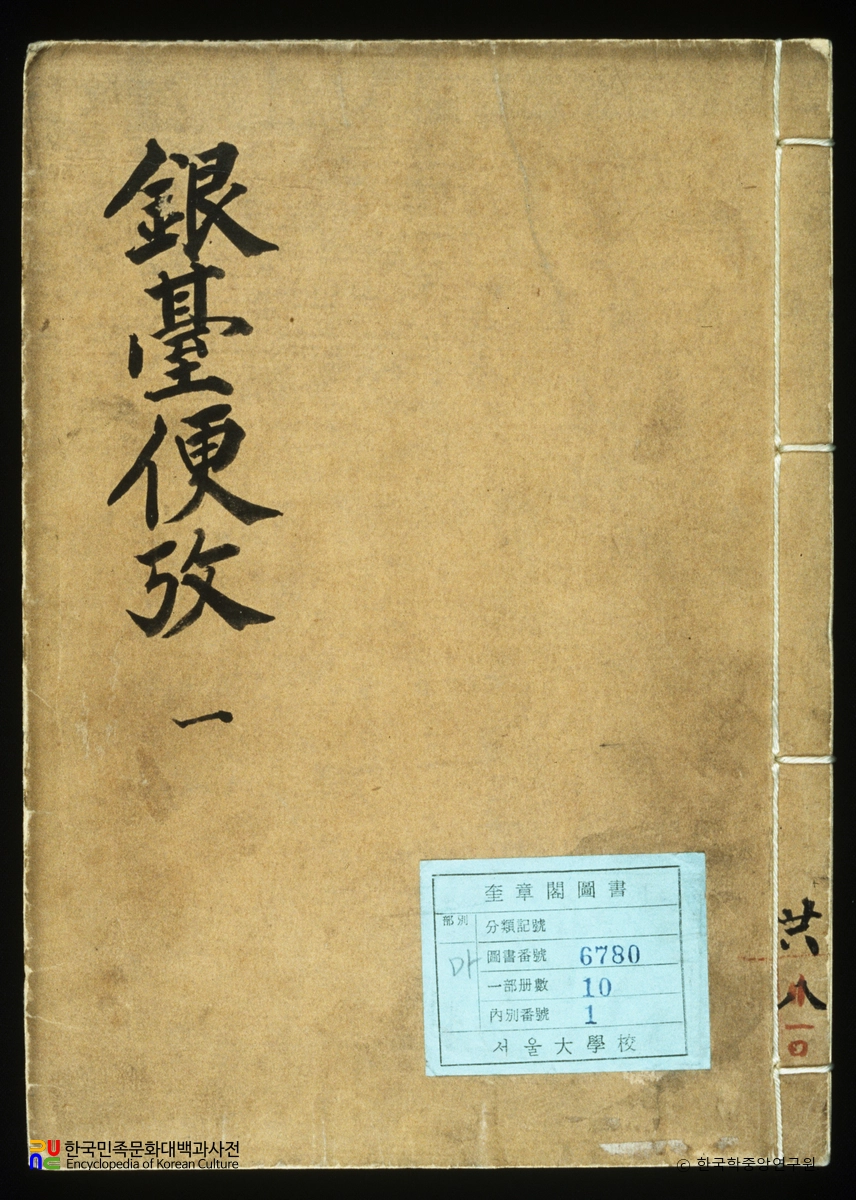 銀臺便攷
一
奎章閣圖書
部別
마
分類記號
圖書番號 6780
一部册數 10
內別番號 1
서울大學校
共
八
한국민족문화대백과사전
Encyclopedia of Korean Culture
© 한국학중앙연구원